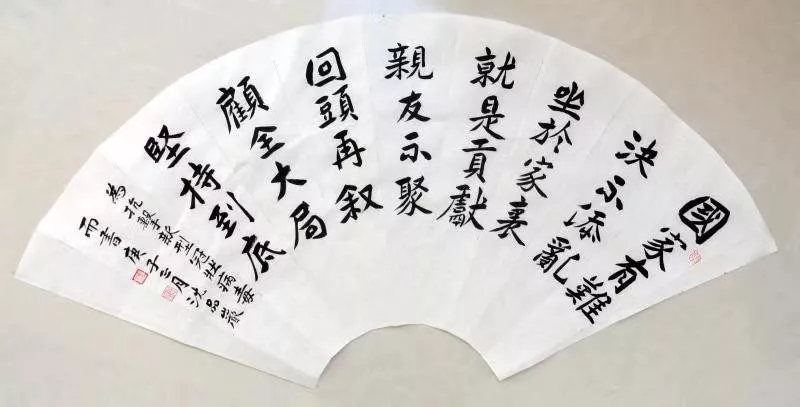 國家有難
決不添亂
坐於家裏
就是貢獻
親友不聚
回頭再叙
顧全大局
堅持到底
為抗擊新型冠狀病毒
而書庚子月沈品